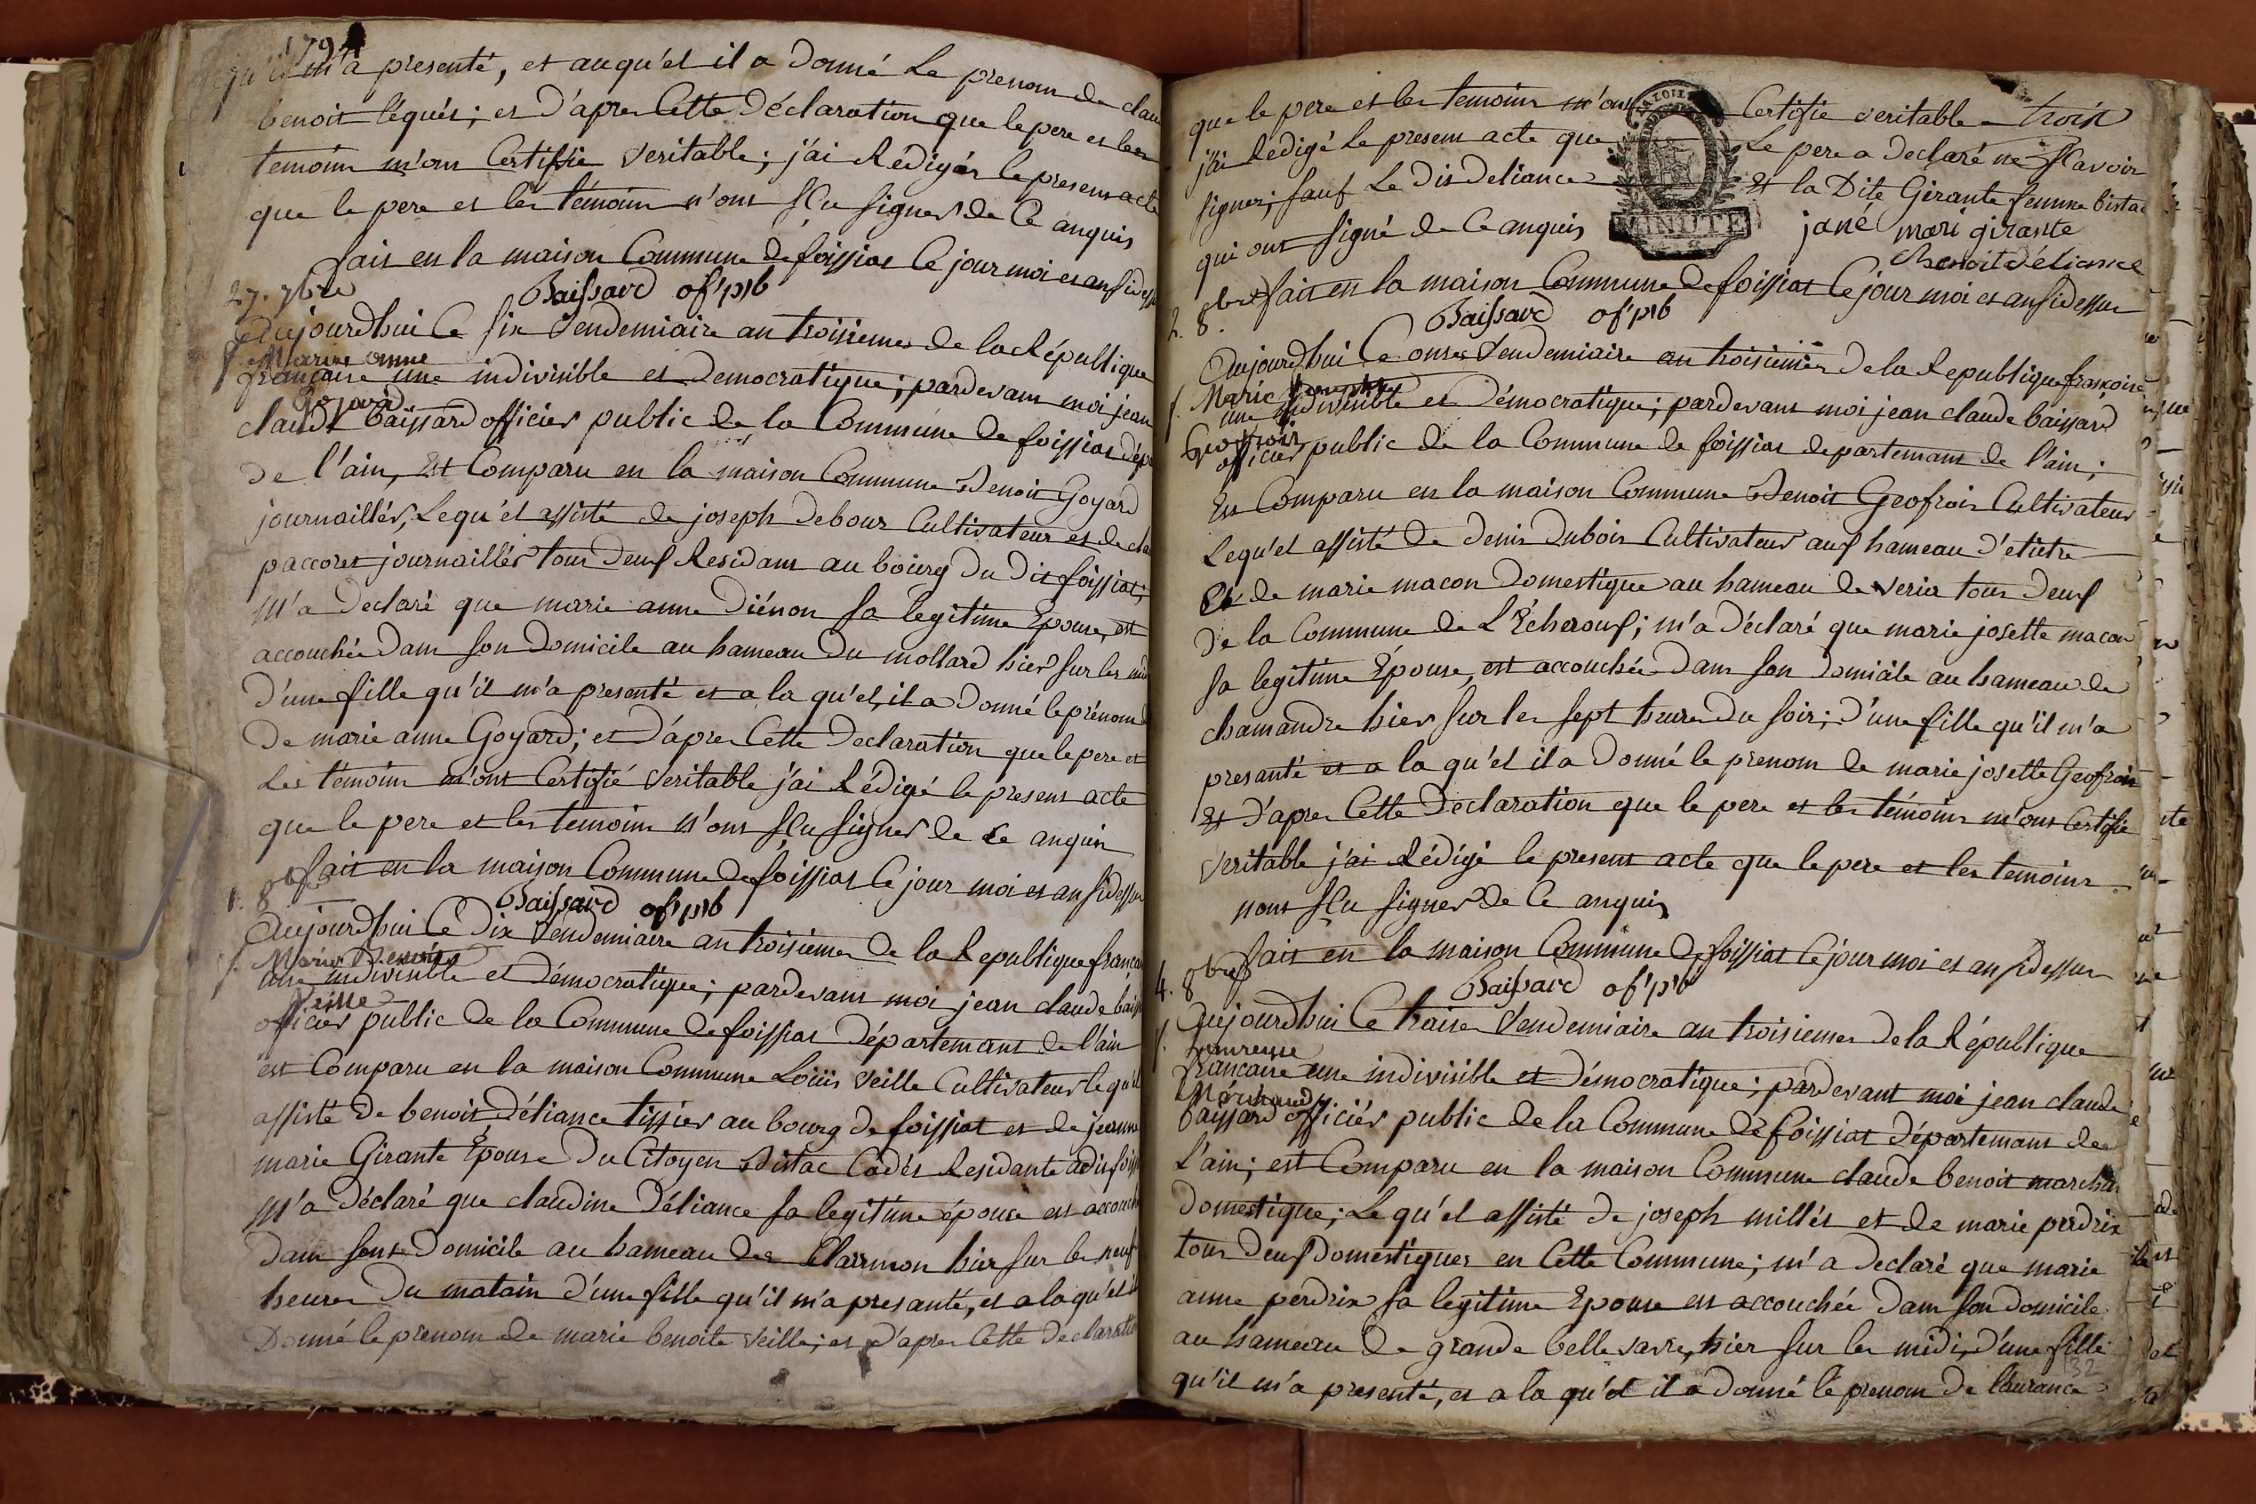 1794
qu'il m'a presenté, et auqu'el il a donné Le prenom de clau
benoit léqués; et d'apres Cette déclaration que le pere et les
temoins m'ont Certifié veritable; j'ai Rédigés le present acte
que le pere et les témoins n'ont sçu signer de Ce anquis
fait en la maison Commune de foissiat Ce jour moi et an sidessu
27. 7bre
Baissard of' p'b
aujourdhui Ce six vendemiaire an troisiemes de la République
f. Marie anne
française une indivisible et democratique; pardevant moi jean
Goyard
claude baissard officier public de la Commune de foissiat dép
de l'ain, Est Comparu en la maison Commune Benoit Goyard
journaillés, Lequ'el assisté de joseph debour Cultivateur et de cla
paccoret journaillés tous deus Residant au bourg du dit foissiat;
M'a declaré que marie anne diénon sa legitime Epouse, est
accouchée dans son domicile au hameau du mollard hier sur les mid
d'une fille qu'il m'a presenté et a la qu'el, il a donné le prénom
de marie anne Goyard; et d'apres Cette declaration que le pere et
Les témoins m'ont Certifié veritable j'ai Rédigé le present acte
que le pere et les temoins n'ont sçu signer de Ce anquis
fait en la maison Commune de foissiat Ce jour moi et an sidessu
1. 8bre
Baissard of' p'b
aujourdhui Ce dix vendemiaire an troisiemes de la Republique franca
f. Marie Benoite
une indivisible et démocratique; pardevant moi jean claude bais
Veille
officier public de la Commune de foissiat département de l'ain
est Comparu en la maison Commune Loüis veille Cultivateur lequ'el
assisté de benoit déliance tissier au bourg de foissiat et de jeanne
marie Girante Epouse du Citoyen Bistac Cadés Residante a dit foiss
M'a déclaré que claudine déliance sa legitime épouse est accouch
dans sont domicile au hameau des Clarmon hier sur les neuf
heures du matain d'une fille qu'il m'a presanté, et a la qu'el il
Donné le prenom de marie benoite veille; et d'apres Cette declaration
que le pere et les temoins m'ont Certifié veritable
j'ai Rédigé le present acte que Le pere a declaré ne sçavoir
signer; sauf Le dit deliance Et la Dite Girante femme bistac
qui ont signé de Ce anquis jane mari girante
MINUTE
Benoit déliance
fait en la maison Commune de foissiat Ce jour moi et an sidessu
2. 8bre
Baissard of' p'b
aujourdhui Ce onses vendemiaire an troisiemes de la Republique française
f. Marie
une indivisible et Démocratique; pardevant moi jean claude baissard
officier public de la Commune de foissiat departemant de l'ain;
Est Comparu en la maison Commune Benoit Geofrois Cultivateur
Lequ'el assisté de denis dubois Cultivateur aus hameau d'etietre
Et de marie macon domestique au hameau de veria tous deus
de la Commune de L'Echerous; m'a déclaré que marie josette macon
sa legitime Epouse, est accouchée dans son domicile au hameau de
chamandre hier sur les sept heures du soir; d'une fille qu'il m'a
presanté et a la qu'el il a donné le prenom de marie josette Geofrois
Et d'apres Cette declaration que le pere et les témoins m'ont Certifié
veritable j'ai Rédigé le present acte que le pere et les temoins
nont sçu signer de Ce anquis
fait en la maison Commune de foissiat Ce jour moi et an sidessu
4. 8bre
Baissard of' p'b
aujourdhui Ce traise vendemiaire an troisiemes de la République
f.
francaise une indivisible et démocratique; pardevant moi jean claude
Marchand
baissard officiér public de la Commune de foissiat Départemant de
L'ain; est Comparu en la maison Commune claude benoit marchan
Domestique; Lequ'el assisté de joseph millés et de marie perdrix
tous deus domestiques en Cette Commune; m'a declaré que marie
anne perdrix sa legitime Epouse est accouchée dans son domicile
au hameau de grande belle varre, hier sur les midi, d'une fille
qu'il m'a presenté, et a la qu'el il a donné le prenom de laurance
32